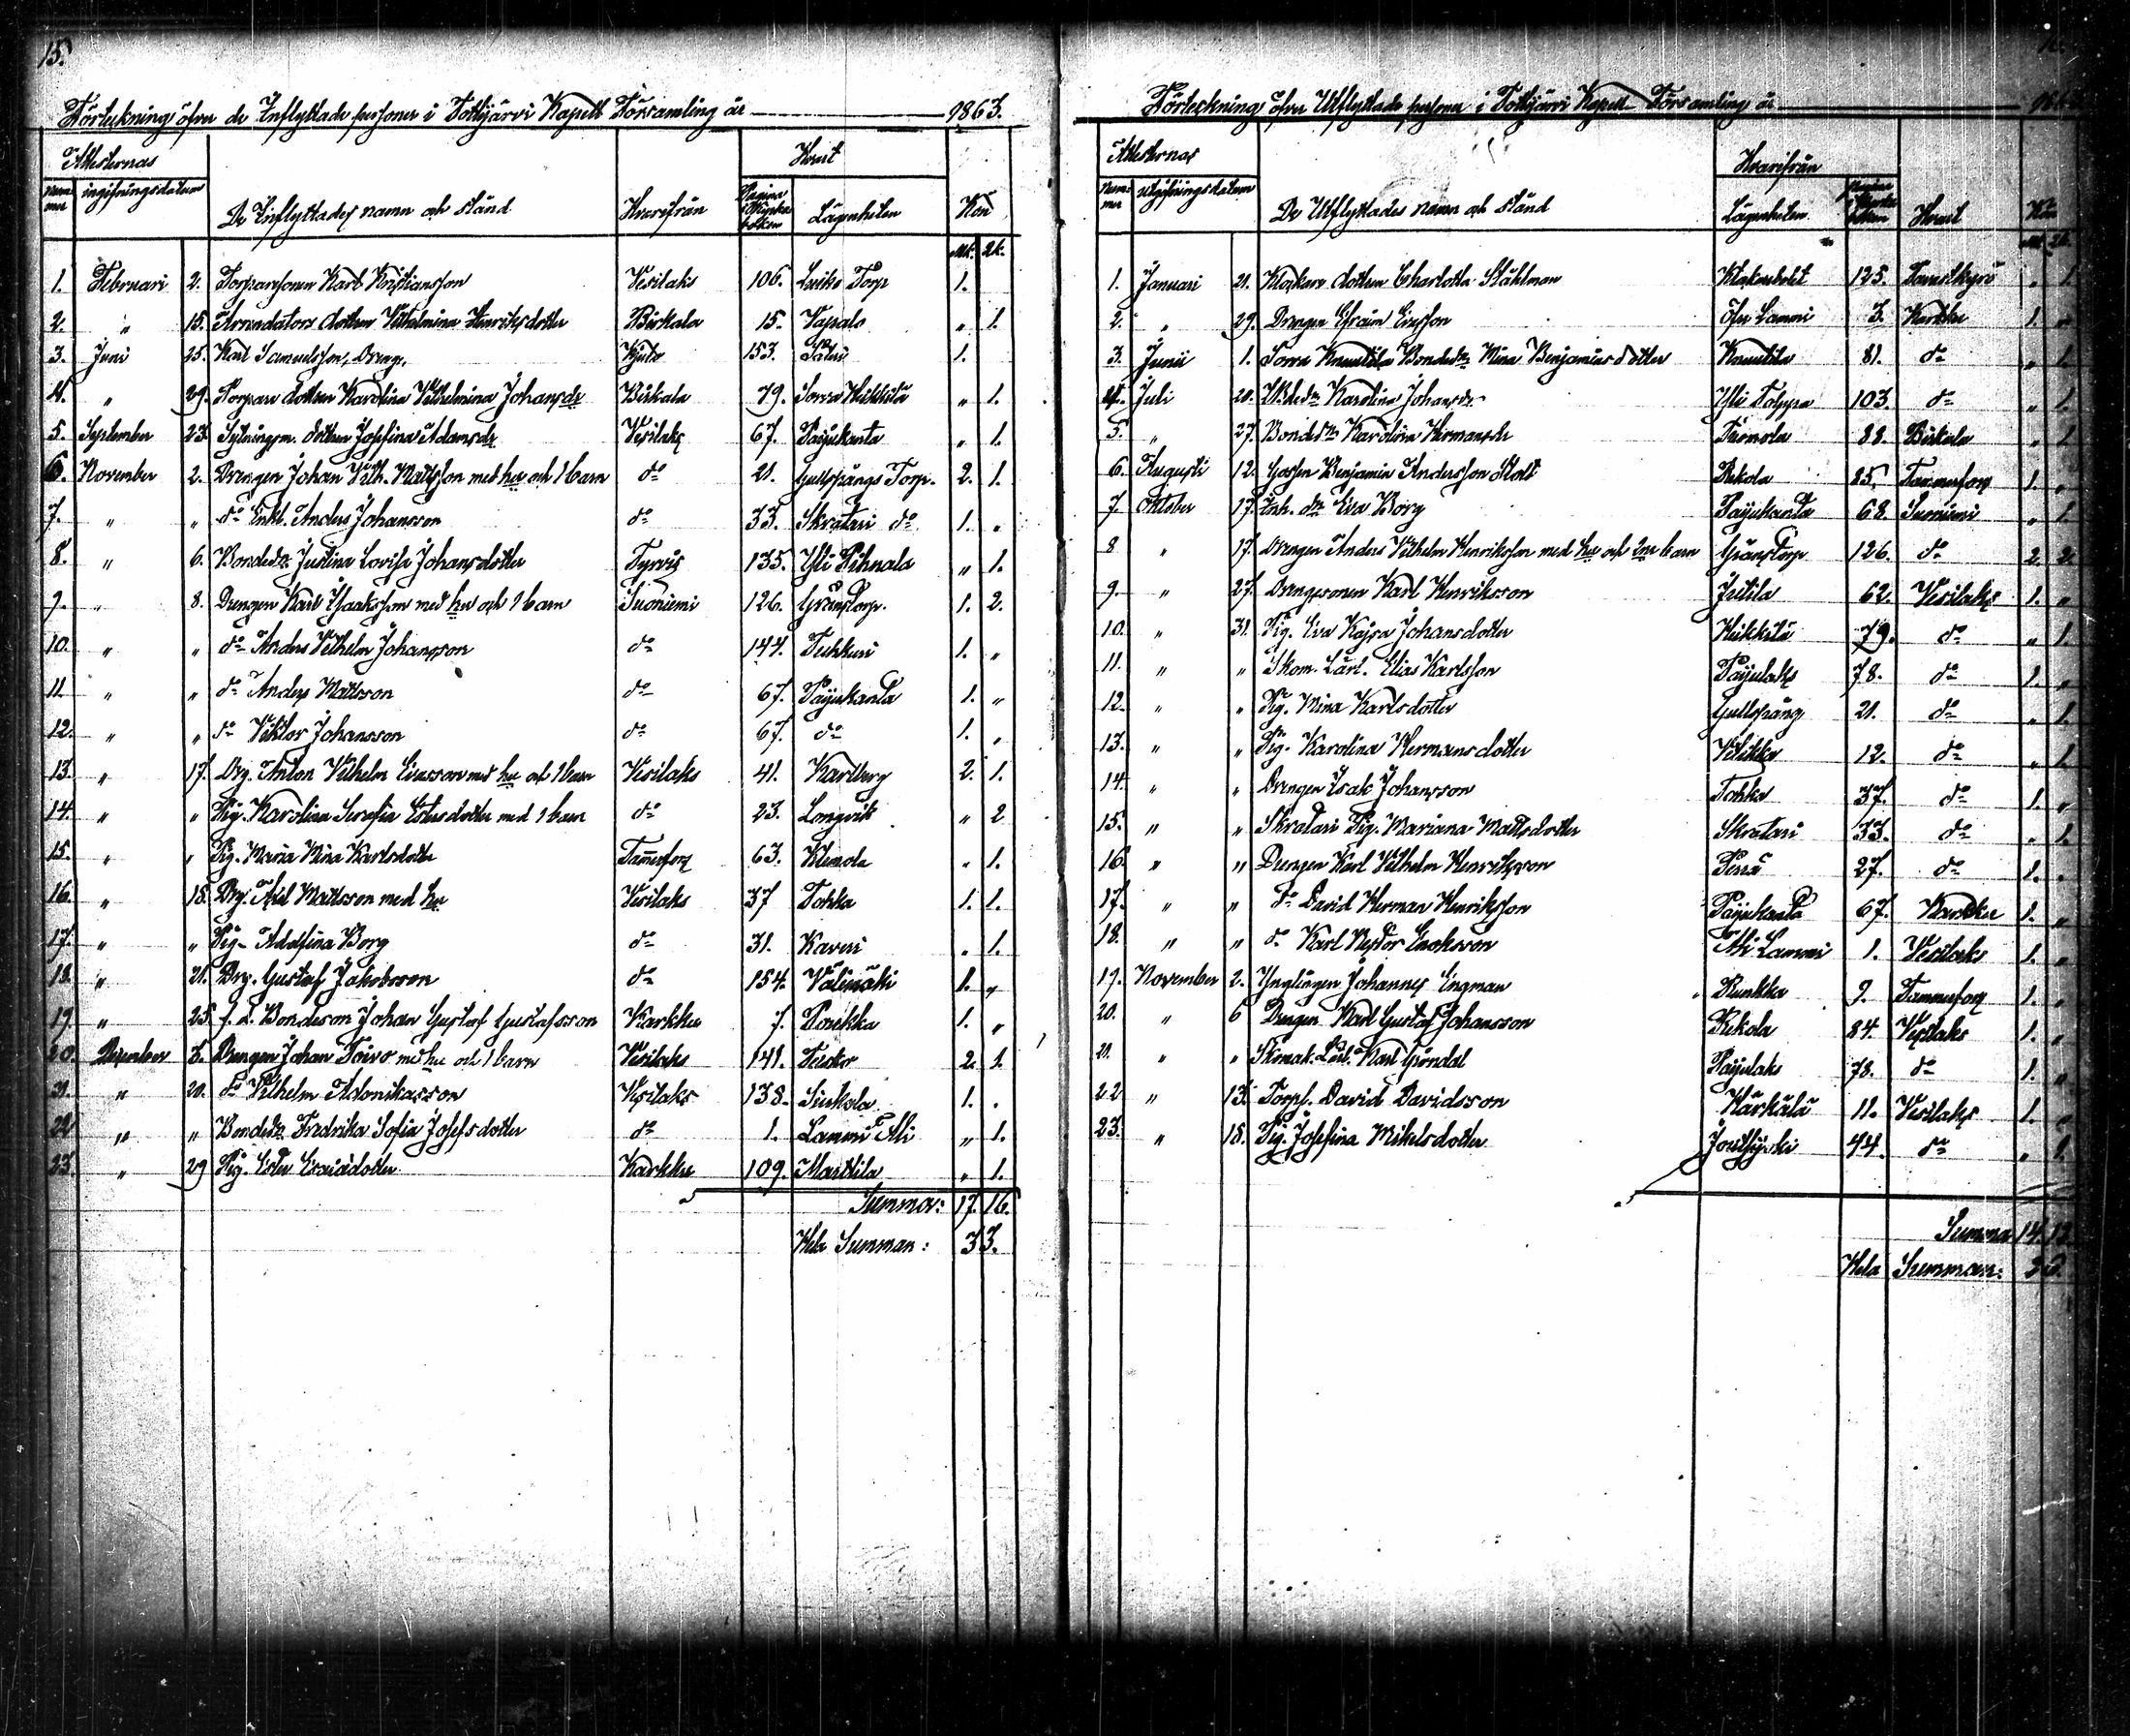 15.
Förteckning öfver de Inflyttade personer i Tottijärvi Kapell Församling år 1863.
Attesternas Hvart
Nummer ingifningsdatum De Inflyttades namn och stånd Hvarifrån Pagina i Kyrkoboken Lägenheten Kön
Mk. Qk.
1. Februari 2. Torparesonen Karl Kristiansson Vesilaks 106. Torp 1.
2. " 15. Arrendators dottren Vilhelmina Henriksdotter Birkala 15. Vapalo " 1.
3. Juni 25. Karl Samuelsson, Dreng, Kjulo 153. Säteri 1.
4. " 29. Torpare dottren Karolina Vilhelmina Johansdr Birkala 79. Sorva Heikkilä " 1.
5. September 23. Sytningsm. dottren Josefina Adamsdr Vesilaks 67. Pajukanta " 1.
6. November 2. Drengen Johan Vilh. Mattsson med hu och 1 barn do 21. Gullsprångs Torp. 2. 1.
7. " " do Enkl. Anders Johansson do 33. Skratari do 1. "
8. " 6. Bondedr. Justina Lovisa Johansdotter Tyrvis 135. Yli Pihnala " 1.
9. " 8. Drengen Karl Isaaksson med hu och 1 barn Suoniemi 126. Gränstorp. 1. 2.
10. " " do Anders Vilhelm Johansson do 144. Tuhkuri 1. "
11. " " do Anders Mattsson do 67. Pajukanta 1. "
12. " " do Viktor Johansson do 67. do 1. "
13. " 17. Drg. Anton Vilhelm Ericsson med hu och 1 barn Vesilaks 41. Karlberg 2. 1.
14. " " Pig. Karolina Serafia Estersdotter med 1 barn do 23. Longvik " 2
15. " " Pig. Maria Mina Karlsdotter Tammerfors 63. Klemola " 1.
16. " 18. Drg. Axel Mattsson med hu Vesilaks 37 Tohka 1. 1.
17. " " Pig. Adolfina Borg do 31. Kaveri " 1.
18. " 21. Drg. Gustaf Jakobsson do 154. Välimäki 1. "
19. " 25. f. d. Bondeson Johan Gustaf Gustafsson Karkku 7. 1. "
20. December 3. Drengen Johan Toivo med hu och 1 barn Vesilaks 141. 2. 1.
21. " 20. do Vilhelm Adonikasson Vesilaks 138. Siukola 1. "
22 " " Bondedr. Fredrika Sofia Josefsdotter do 1. Lammi Ali " 1.
23. " 29 Pig. Ester Esaiædotter Karkku 109. Marttila " 1.
Summa: 17. 16.
Hela Summan: 33.
Förteckning öfver Utflyttade personer i Tottijärvi Kapell Församling år
Attesternas Hvarifrån
Nummer utgifningsdatum De Utflyttades namn och stånd Lägenheten Pagina i Kyrkoboken Hvart Kön
Mk. Qk.
1. Januari 21. Klockare dottren Charlotta Ståhlman Klockarebolet 125. Tavastkyrö " 1.
2. " 29. Drengen Efraim Ericsson Öfver Lammi 3. Karkku 1. "
3. Junii 1. Sorva Knuutila Bondedr. Mina Benjaminsdotter Knuutila 81. do " 1.
4. Juli 20. Karolina Johansdr. Yli 103. do " 1.
5. " 27. Bondedr. Karolina Hermansdr 88. Birkala " 1.
6. Augusti 12. Gossen Benjamin Andersson Stolt Rekola 85. Tammerfors 1. "
7. Oktober 17. Inh. dr. Eva Borg Pajukanta 68. Suoniemi " 1.
8 " 17. Drengen Anders Vilhelm Henriksson med hu och 2ne barn Gränstorp 126. do 2. 2.
9. " 27. Drengesonen Karl Henriksson 62. Vesilaks 1. "
10. " 31. Pig. Eva Kajsa Johansdotter Heikkilä 79. do " 1.
11. " " Skom. Lärl. Elias Karlsson Pajulaks 78. do 1. "
12. " " Pig. Mina Karlsdotter Gullspång 21. do " 1.
13. " " Pig. Karolina Hermansdotter 12. do " 1.
14. " " Drengen Isak Johansson Tohka 37. do 1. "
15. " " Skratari Pig. Mariana Mattsdotter Skratari 33. do " 1.
16. " " Drengen Karl Vilhelm Henriksson 27. do 1. "
17. " " do David Herman Henriksson Pajukanta 67. Karkku 1. "
18. " " do Karl Nestor Enoksson Ali Lammi 1. Vesilaks 1. "
19. November 2. Ynglingen Johannes Engman Runkka 9. Tammerfors 1. "
20. " 6 Drengen Karl Gustaf Johansson Rekola 84. Vesilaks 1. "
21. " " Skomak. Lärl. Karl Gröndal Pajulaks 78. do 1. "
22 " 13. Torps. David Davidsson Kärkälä 11. Vesilaks 1. "
23. " 18. Pig. Josefina Mikelsdotter 44. do " 1.
Summa 14. 12
Hela Summan: 26.